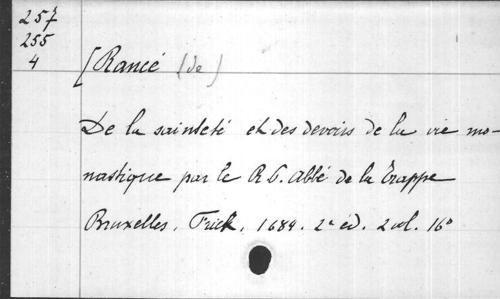 257
255
4
[Rancé (de)
De la sainteté et des devoirs de la vie mo-
nastique par le R. P. abbé de la Trappe
Bruxelles, Frick, 1684. 2e éd. 2 vol. 16°